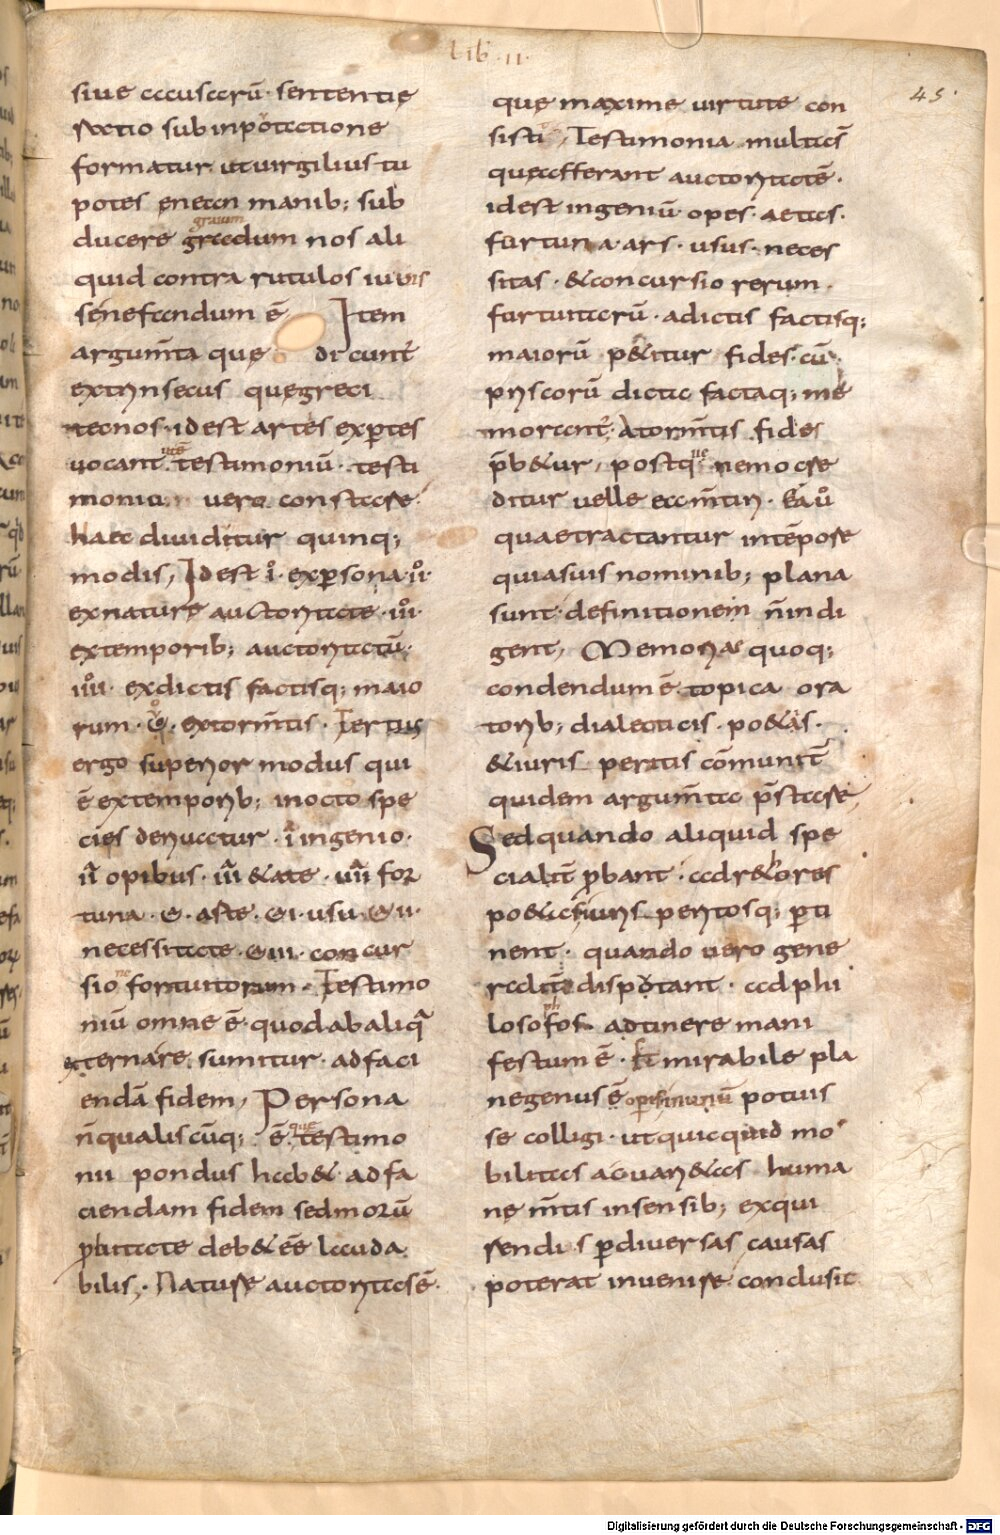 Lib · II ·
45 ·
siue accusarū · sententie
ratio sub inpotatione
formatur ut uirgilius tu
potes enean manib; sub
ducere graedum nos ali
graium
quid contra rutulos iuuis
se nefandum ē Item
argum̄ta que dicunt
extrinsecus que greci
tecnos · id est artes expertes
uocant · testimoniū · testi
monia uero constare ·
haec diuiditur quinq;
modis, Id est ·I· ex persona ·II·
ex nature auctoritate · III ·
ex temporib; auctoritatū ·
IIII · ex dictis factisq; maio
rum · V · ex torm̄tis · Tertius
ergo superior modus qui
ē ex temporib; in octo spe
cies deriuatur · I ingenio ·
II opibus · III &ate · IIII for
tuna · V · arte · VI · usu · VII ·
necessitate · VIII · concur
sione fortuitorum · Testimo
niū omne ē · quod ab aliqua
externa re sumitur · ad faci
endā fidem, Persona
n̄ qualiscūq; ē que testimo
nii pondus hab& · ad fa
ciendam fidem sed morū
probitate deb& ēē lauda
bilis, · Nature auctoritas ē ·
que maxime uirtute con
sisti, Testimonia multas̄
quae afferant auctoritatē ·
id est ingeniū opes · aetas ·
fortuna · ars · usus · neces
sitas · & concursio rerum ·
fortuitarū · a dictis factisq;
maiorū p&itur fides · cū
priscorū dicta factaq; me
morant̄ · A torm̄tis fides
prob&ur, postq̄ nemo cre
ditur uelle eam̄tiri · Ea ů
quae tractantur in tēpore
quia suis nominib; plana
sunt · definitionem n̄ indi
gent, Memoriae quoq;
condendum ē topica ora
torib; dialecticis · po&is ·
& iuris peritis cōmunit̄
quidem argum̄ta p̄stare,
Sed quando aliquid spe
cialit̄ probant · ad r&ores
po&as iuris peritosq; perti
nent · quando uero gene
ralit̄ disputant · ad phi
losofos adtinere mani
ph
festum ē · mirabile pla
ne genus ē operis in unū potuis
se colligi · ut quicquid mo
bilitas ac uari&as huma
ne m̄tis in sensib; exqui
rendis per diuersas causas
poterat inuenire · conclusit
Digitalisierung gefördert durch die Deutsche Forschungsgemeinschaft - DFG